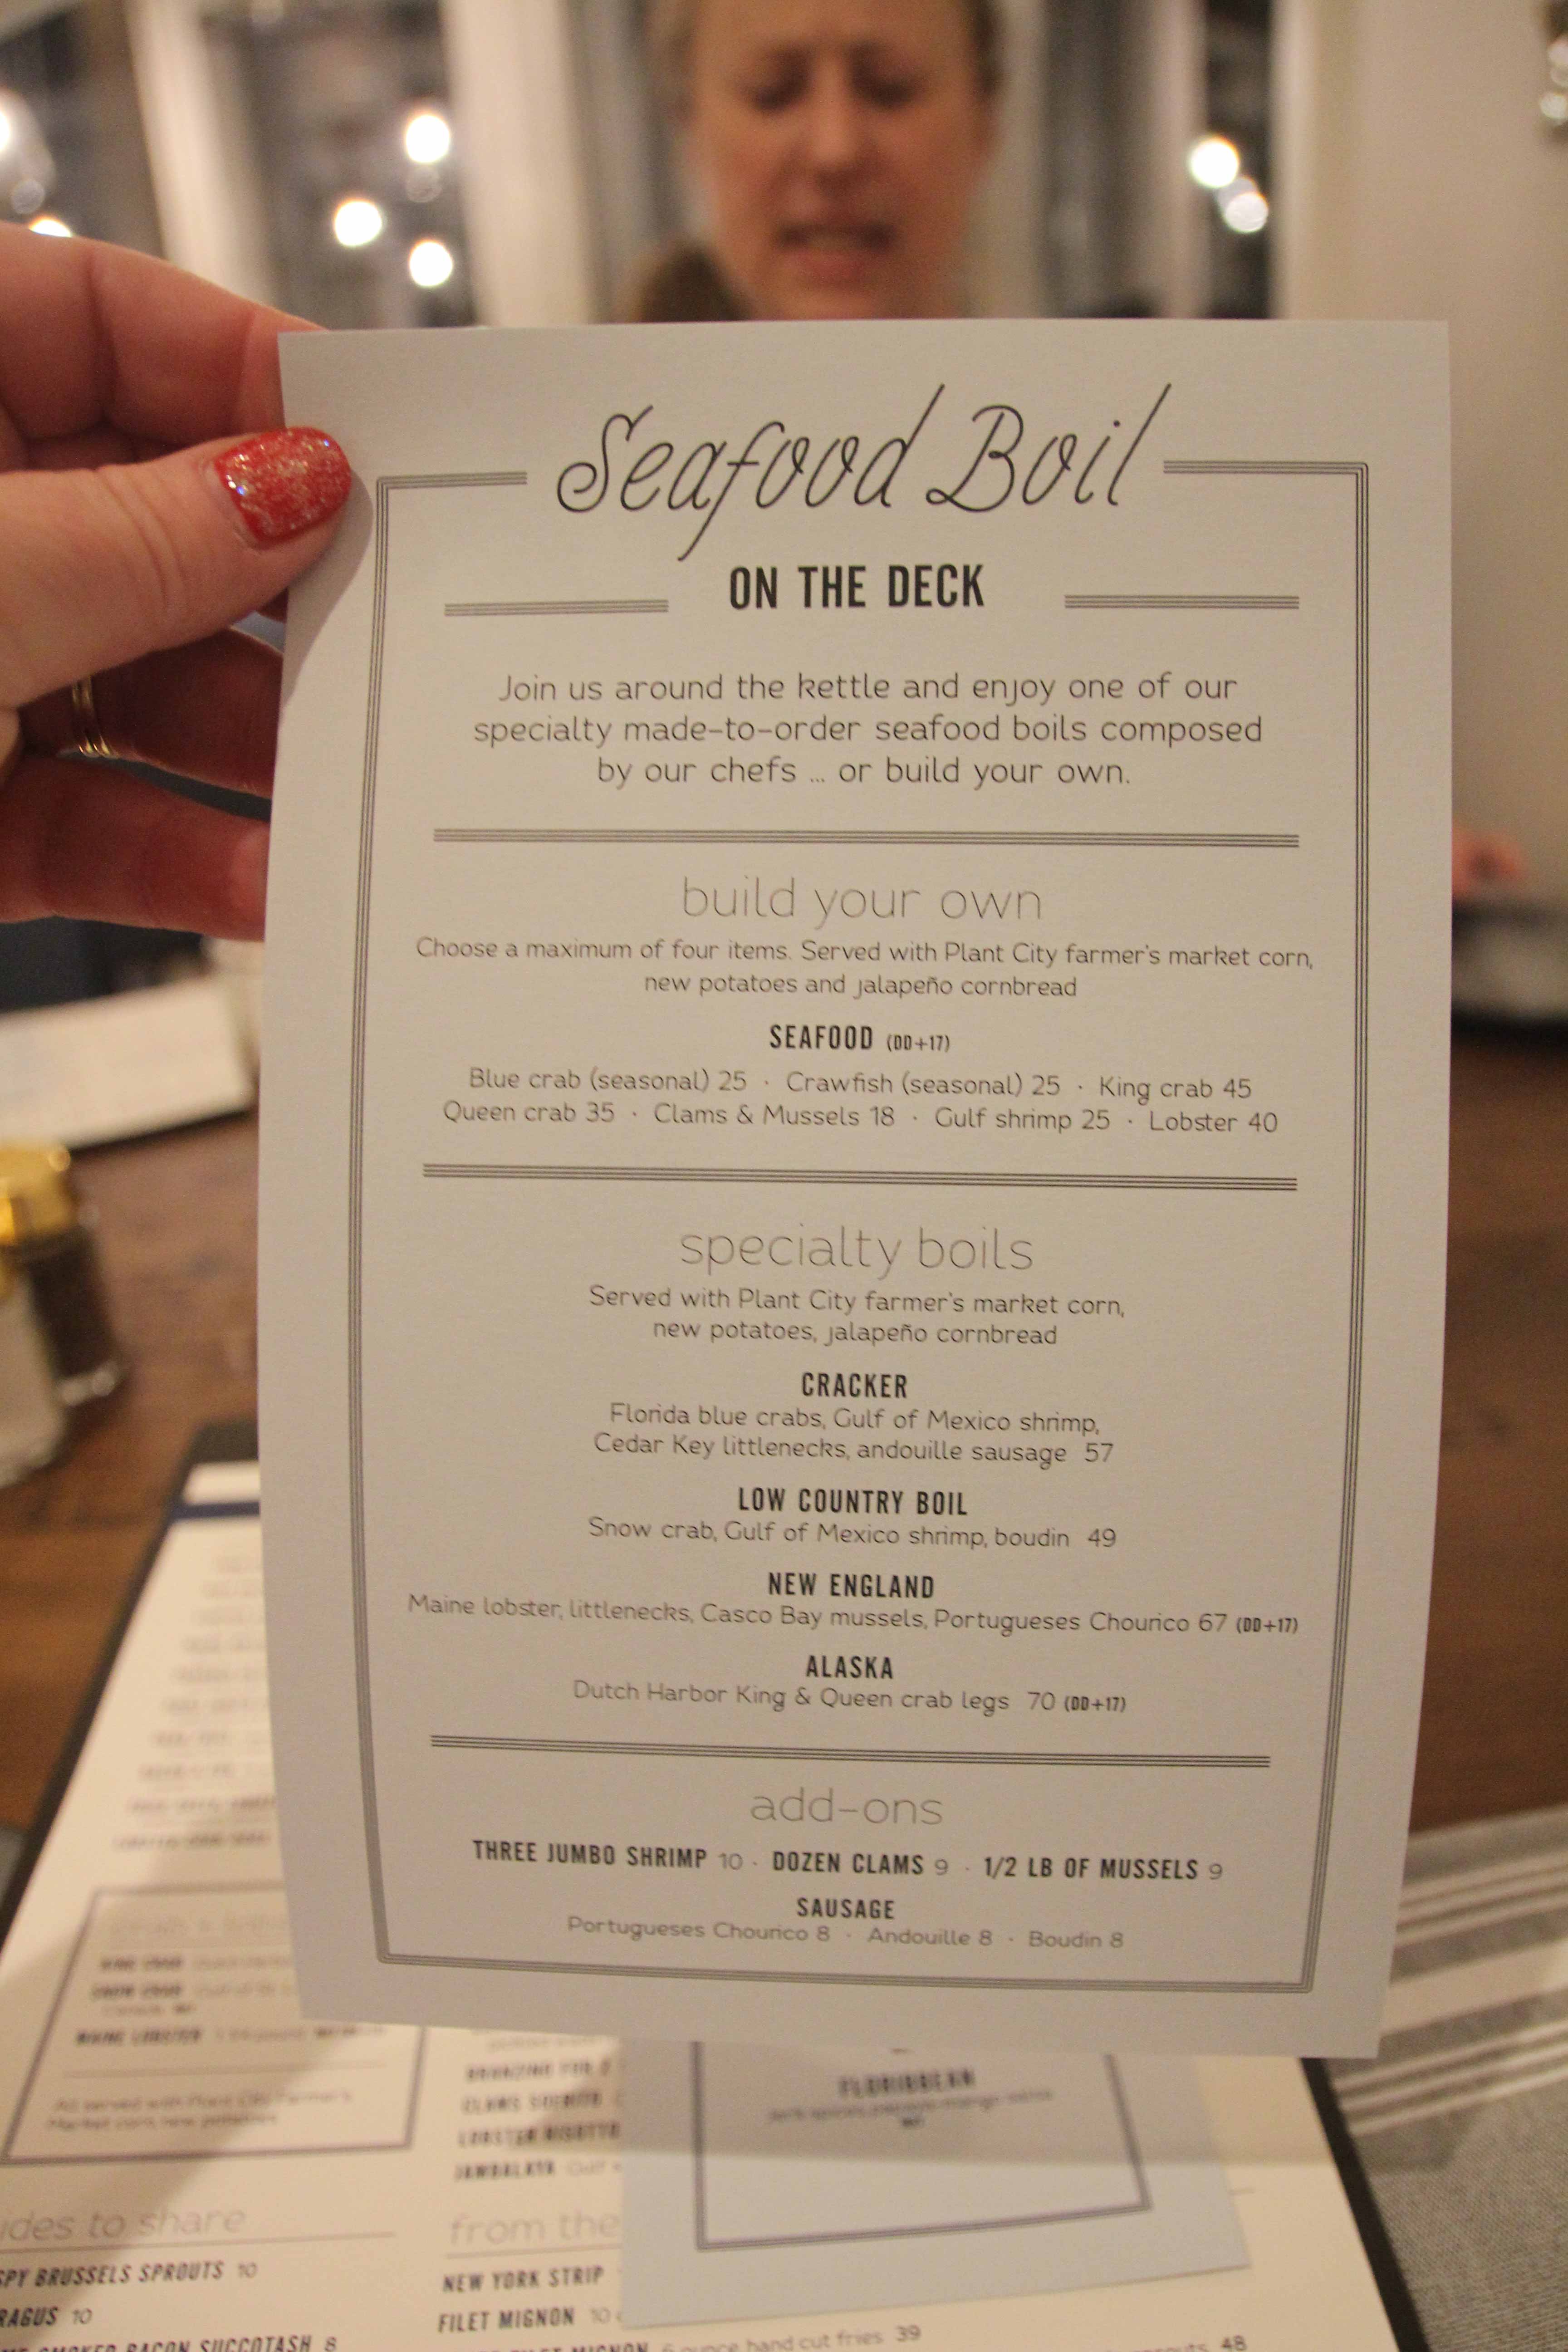 Seafood Boil
ON THE DECK
Join us around the kettle and enjoy one of our
specialty made-to-order seafood boils composed
by our chefs ... or build your own.
build your own
Choose a maximum of four items. Served with Plant City farmer's market corn,
new potatoes and jalapeño cornbread
SEAFOOD (DD+17)
Blue crab (seasonal) 25 · Crawfish (seasonal) 25 · King crab 45
Queen crab 35 · Clams & Mussels 18 · Gulf shrimp 25 · Lobster 40
specialty boils
Served with Plant City farmer's market corn,
new potatoes, jalapeño cornbread
CRACKER
Florida blue crabs, Gulf of Mexico shrimp,
Cedar Key littlenecks, andouille sausage 57
LOW COUNTRY BOIL
Snow crab, Gulf of Mexico shrimp, boudin 49
NEW ENGLAND
Maine lobster, littlenecks, Casco Bay mussels, Portugueses Chourico 67 (DD+17)
ALASKA
Dutch Harbor King & Queen crab legs 70 (DD+17)
add-ons
THREE JUMBO SHRIMP 10 · DOZEN CLAMS 9 · 1/2 LB OF MUSSELS 9
SAUSAGE
Portugueses Chourico 8 · Andouille 8 · Boudin 8
KING CRAB
SNOW CRAB
MAINE LOBSTER
Market corn, new potatoes
ides to share
SPY BRUSSELS SPROUTS 10
RAGUS 10
SMOKED BACON SUCCOTASH 8
BRANZINO FOR 2
LOBSTER RISOTTO
JAMBALAYA Gulf
from the
NEW YORK STRIP
FILET MIGNON 10
FILET MIGNON 6 ounce hand cut fries 39
FLORIBBEAN
sprouts 48